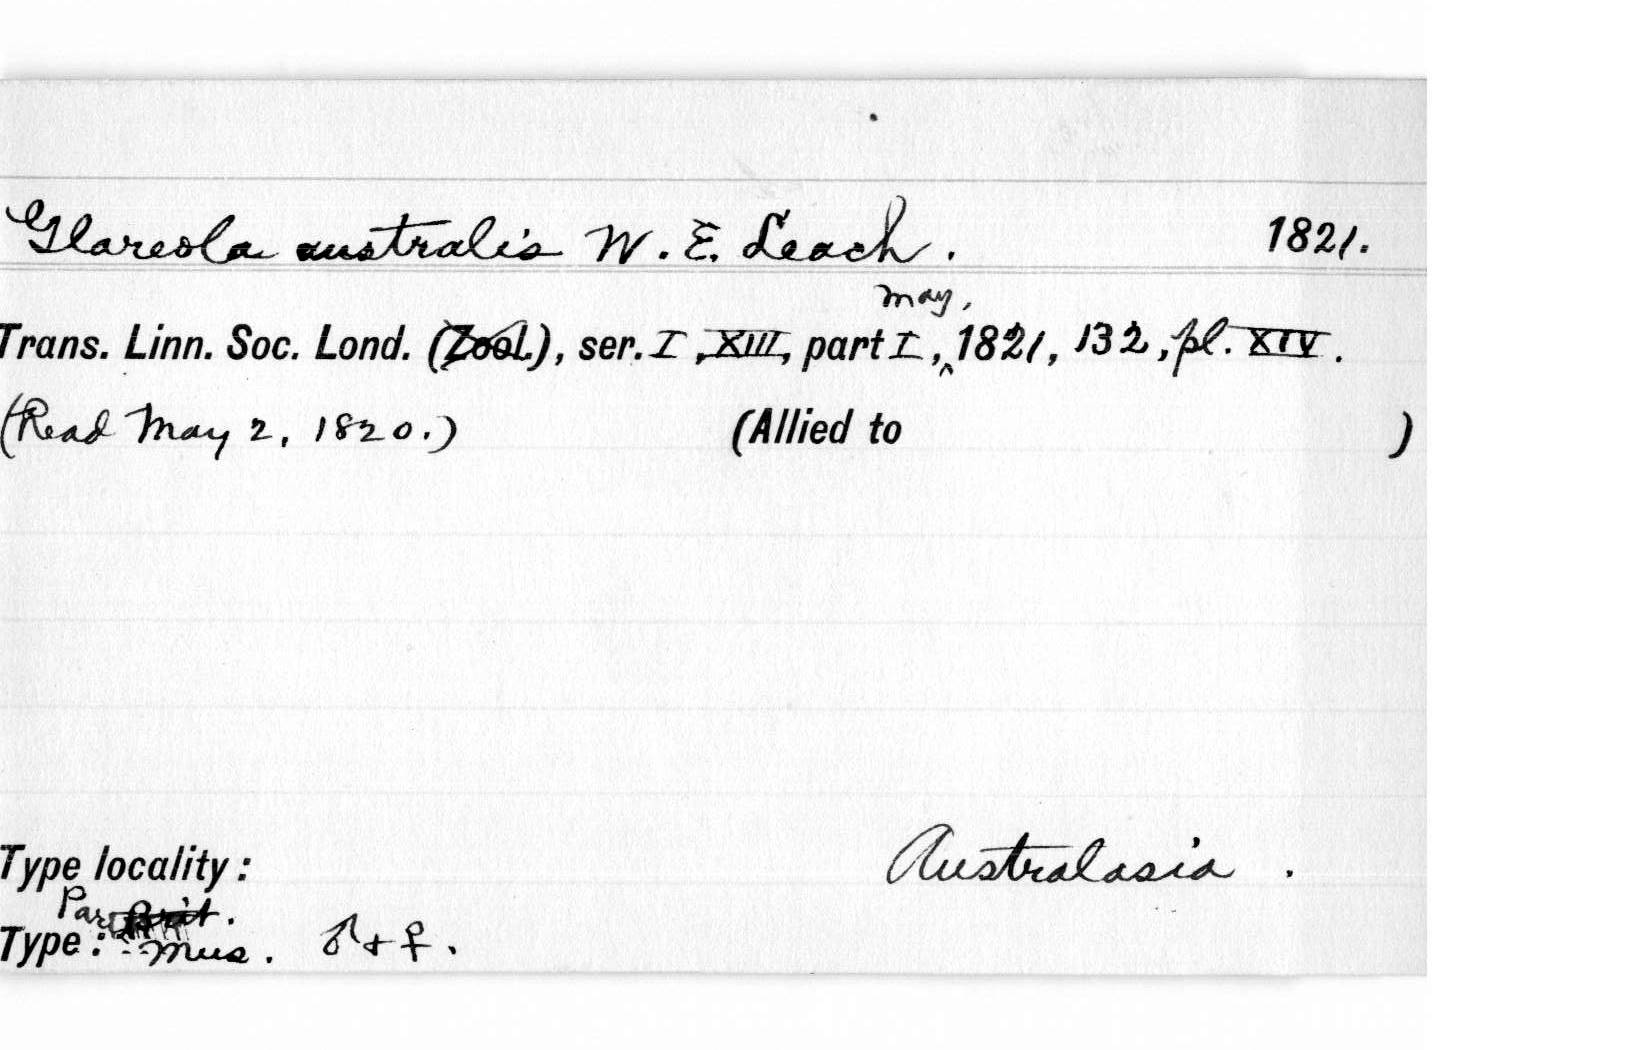 Glareola australis W. E. Leach. 1821.
May,
Trans. Linn. Soc. Lond. (Zool.), ser. I, XIII, part I, ^ 1821, 132, pl. XIV.
(Read May 2, 1820.) (Allied to )
Type locality: Australasia.
Brit.
Type: Mus. ♂ + ♀.